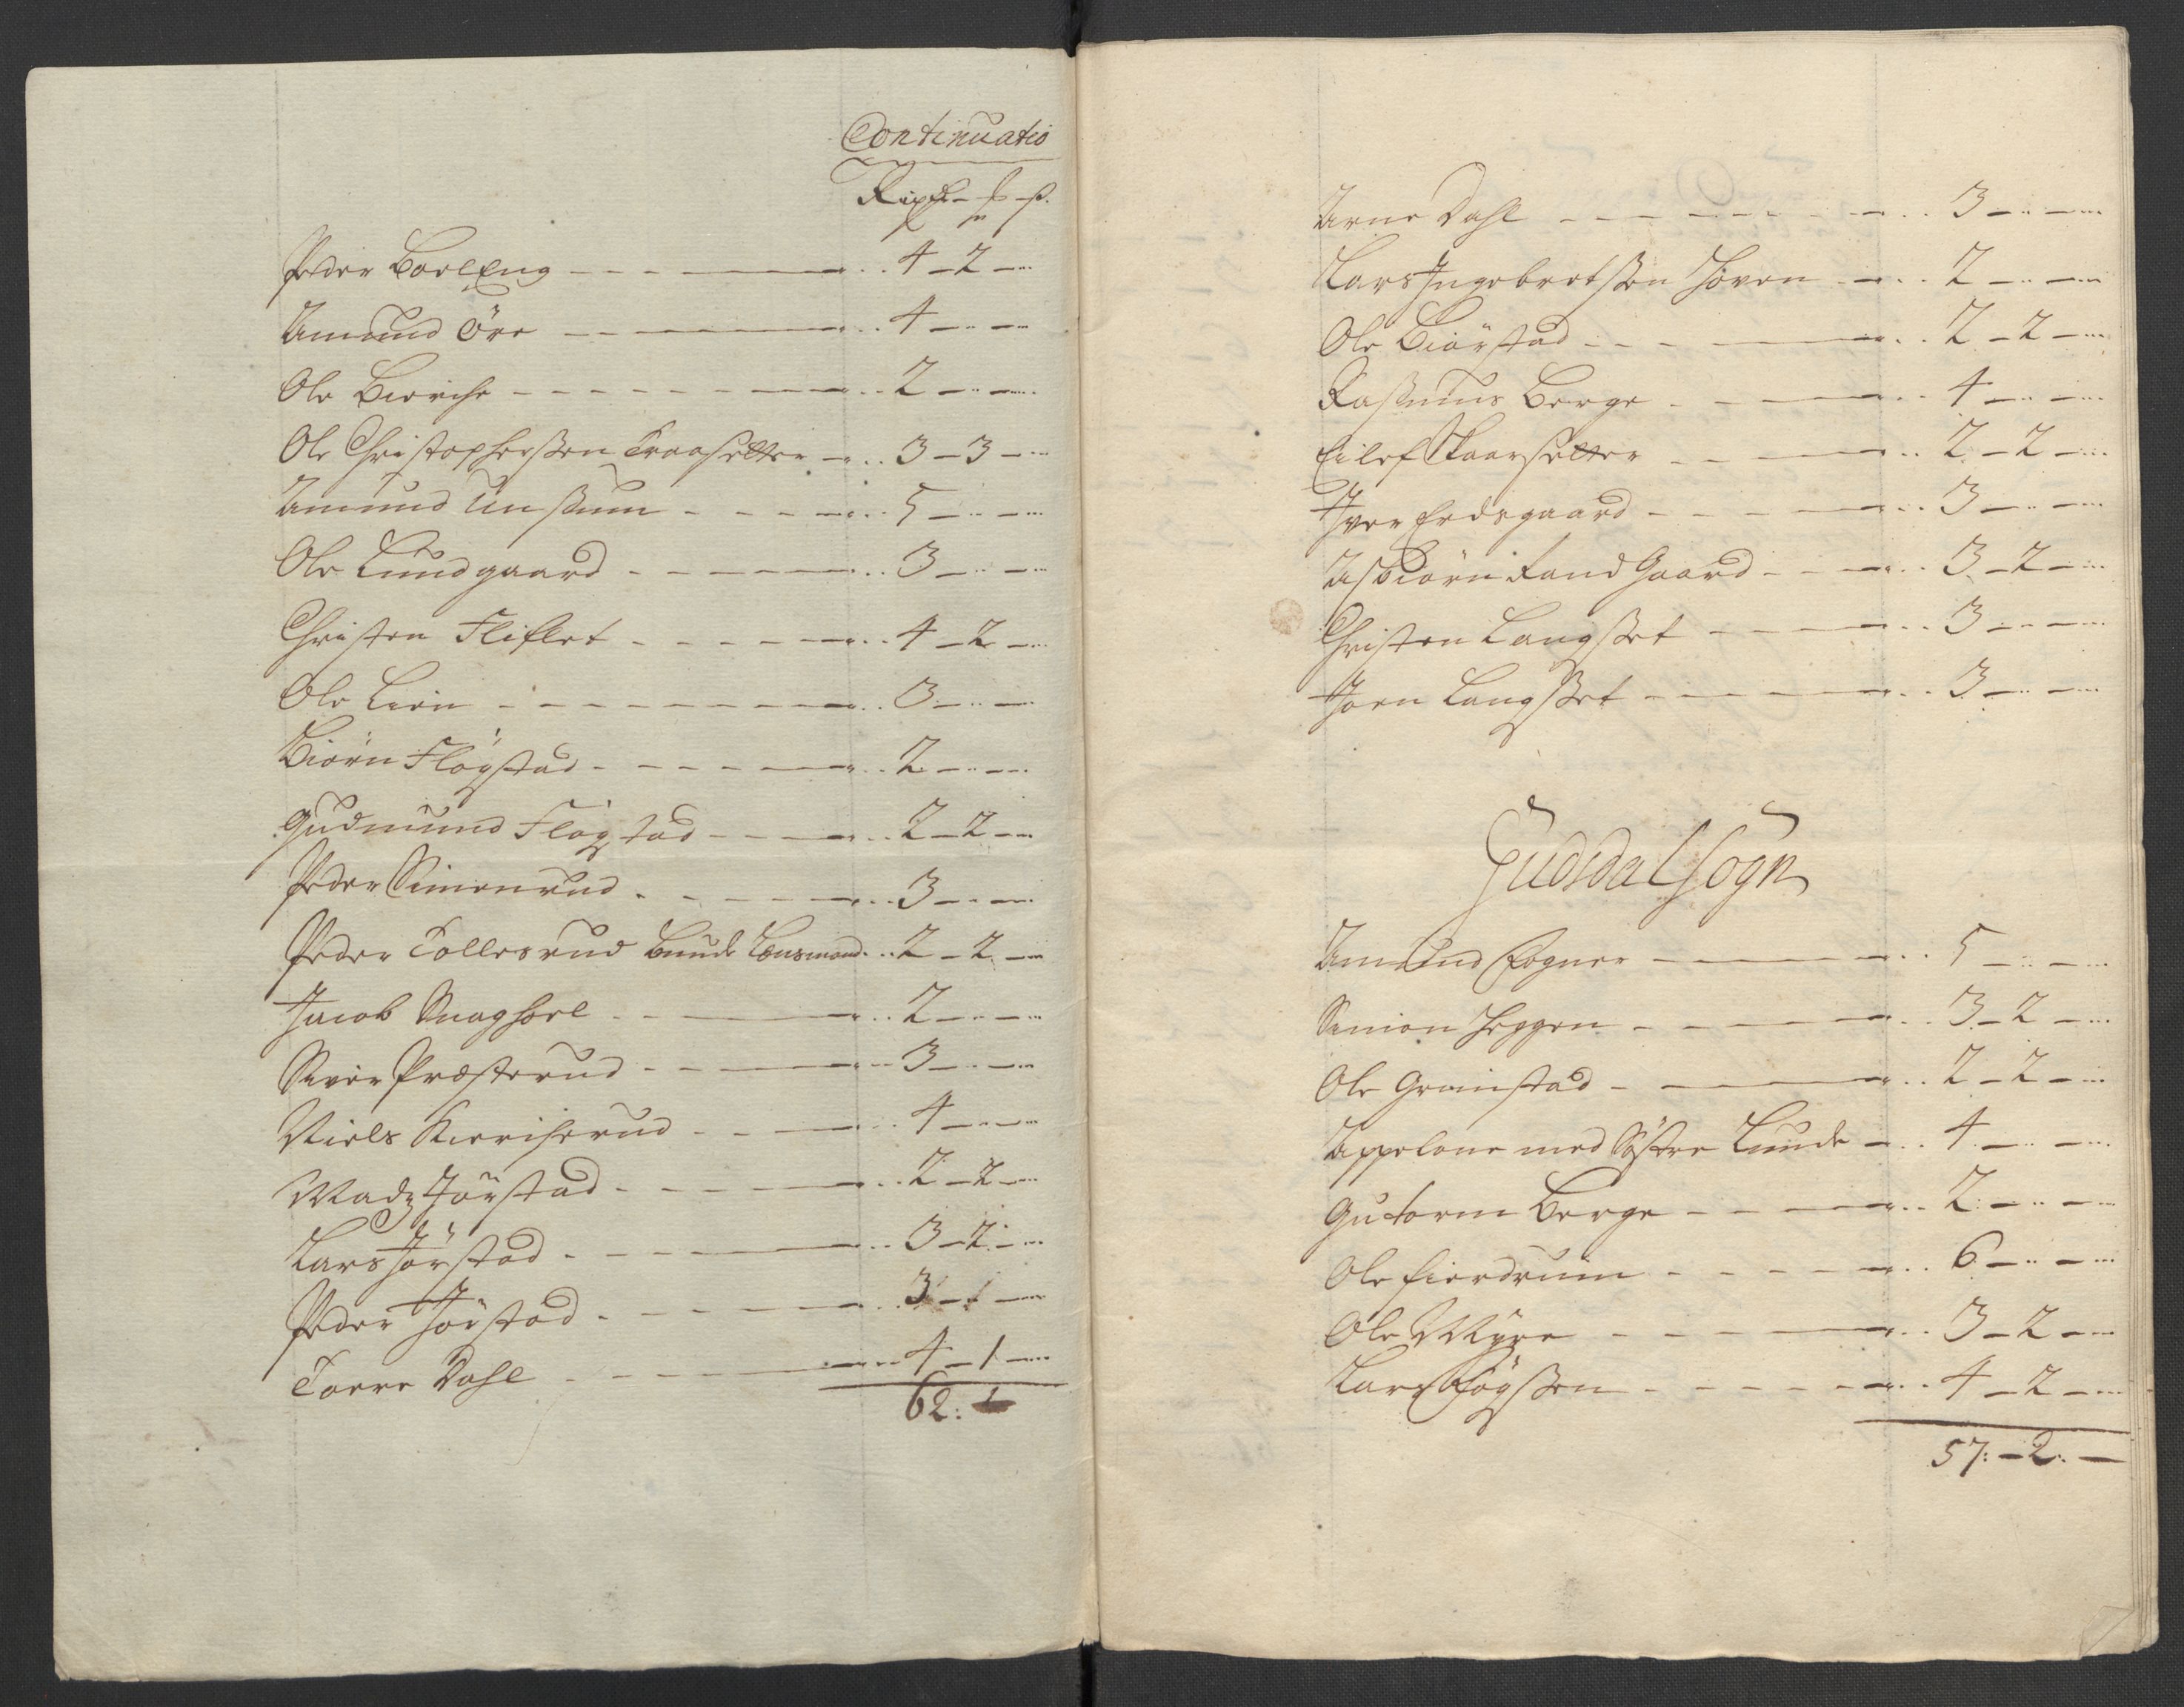 Continuatio
Rixd – –
Peder Boeleng – – – 4 – 2 –
Amund Öre – – – 4 – –
Ole Bierche – – – 2 – –
Ole Christophersen Traasetter – 3 – 3 –
Amund Unsum – – – 5 – –
Ole Lundgaard – – – 3 – –
Christen Fliflet – – – 4 – 2 –
Ole Lien – – – 3 – –
Biörn Flögstad – – – 2 – –
Gudmund Flögstad – – – 2 – 2 –
Peder Simenrud – – – 3 – –
Peder Tollesrud Bunde Lensmand – 2 – 2 –
Jacob – – – 2 – –
Siver Præsterud – – – 3 – –
Niels Kiericherud – – – 4 – –
Madz Jörstad – – – 2 – 2 –
Lars Jörstad – – – 3 – 2 –
Peder Jörstad – – – 3 – 1 –
Torre Dahl – – – 4 – 1 –
62:
Arne Dahl – – – 3 – –
Lars Ingebretsen Hoven – 2 – –
Ole Biörstad – – – 2 – 2 –
Rasmus Berge – – – 4 – –
Eilef Skaarsetter – – – 2 – 2 –
Iver Fedsgaard – – – 3 – –
Asbiörn RandGaard – – – 3 – 2 –
Christen Langset – – – 3 – –
Joen Langset – – – 3 – –
Gudsdal Sogn
Amund Fogner – – – 5 – –
Simon Heggen – – – 3 – 2 –
Ole Grimstad – – – 2 – 2 –
Appelone med Söstre Lunde – 4 – –
Gutorm Berge – – – 2 – –
Ole Fierdrum – – – 6 – –
Ole Myre – – – 3 – 2 –
Lars – – – 4 – 2 –
57: – 2: –